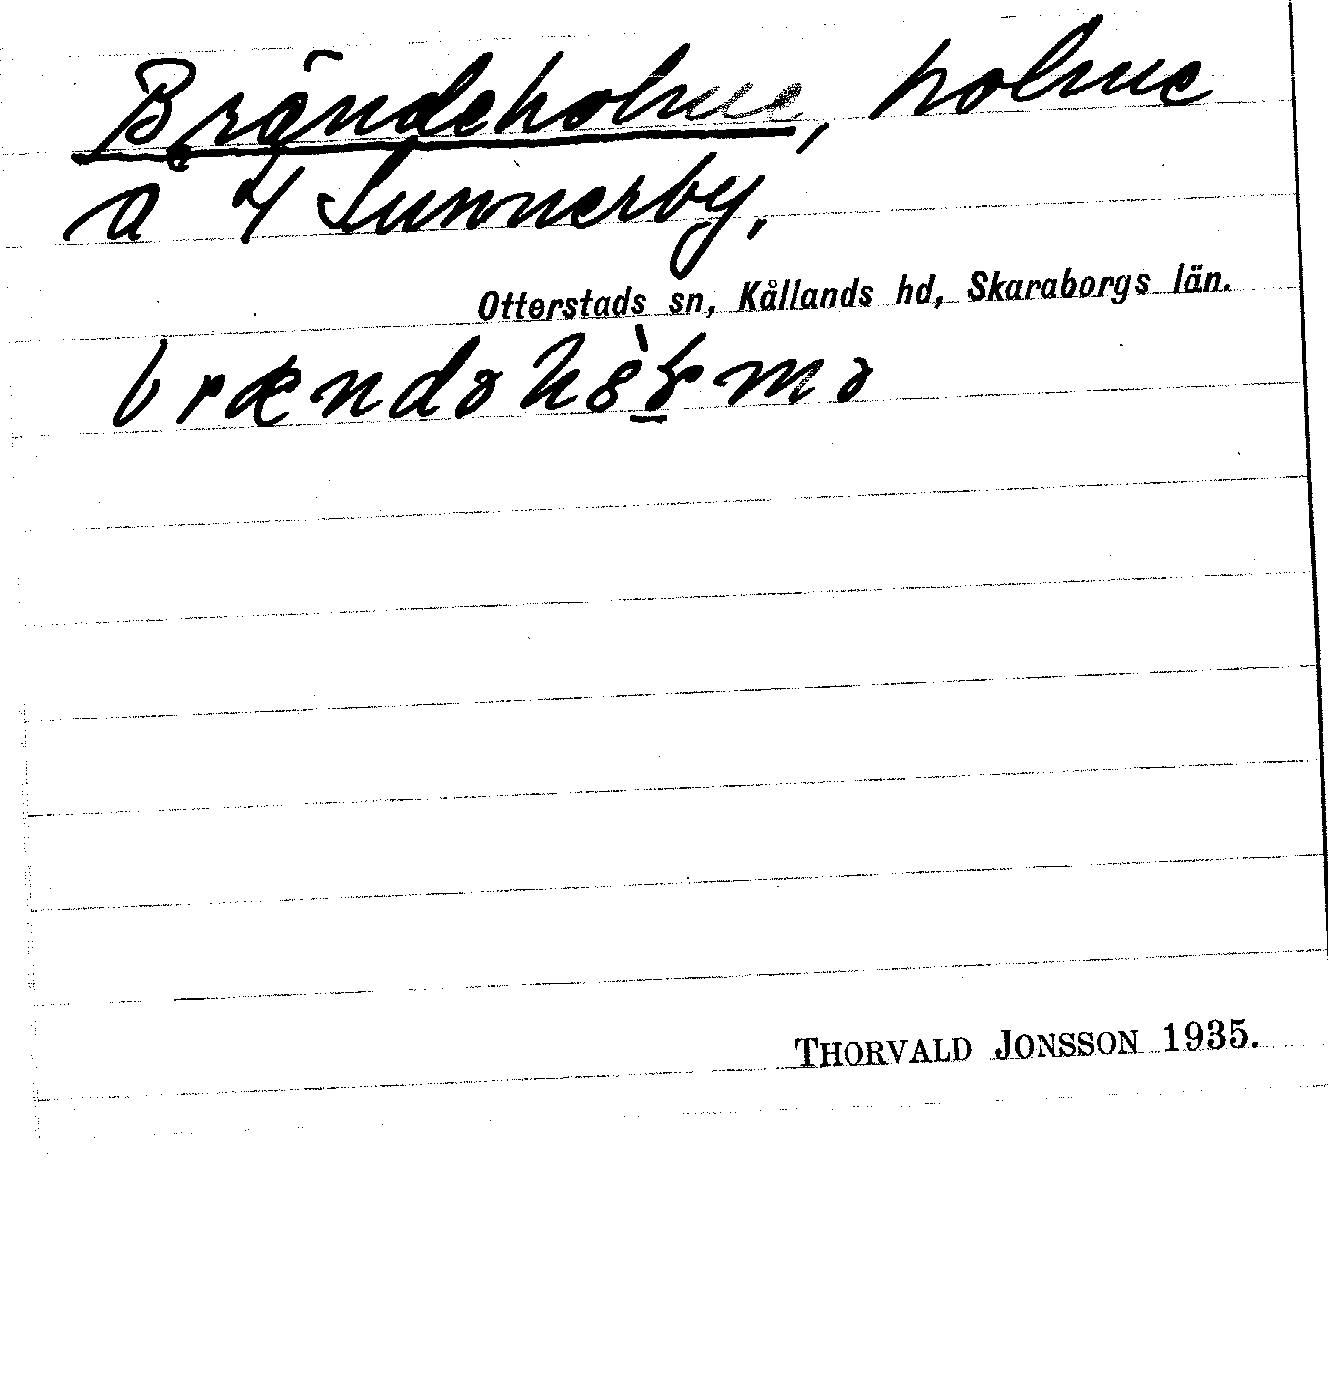 Brändeholme, holme
å 4 Sunnerby,
Otterstads sn, Kållands hd, Skaraborgs län.
THORVALD JONSSON 1935.